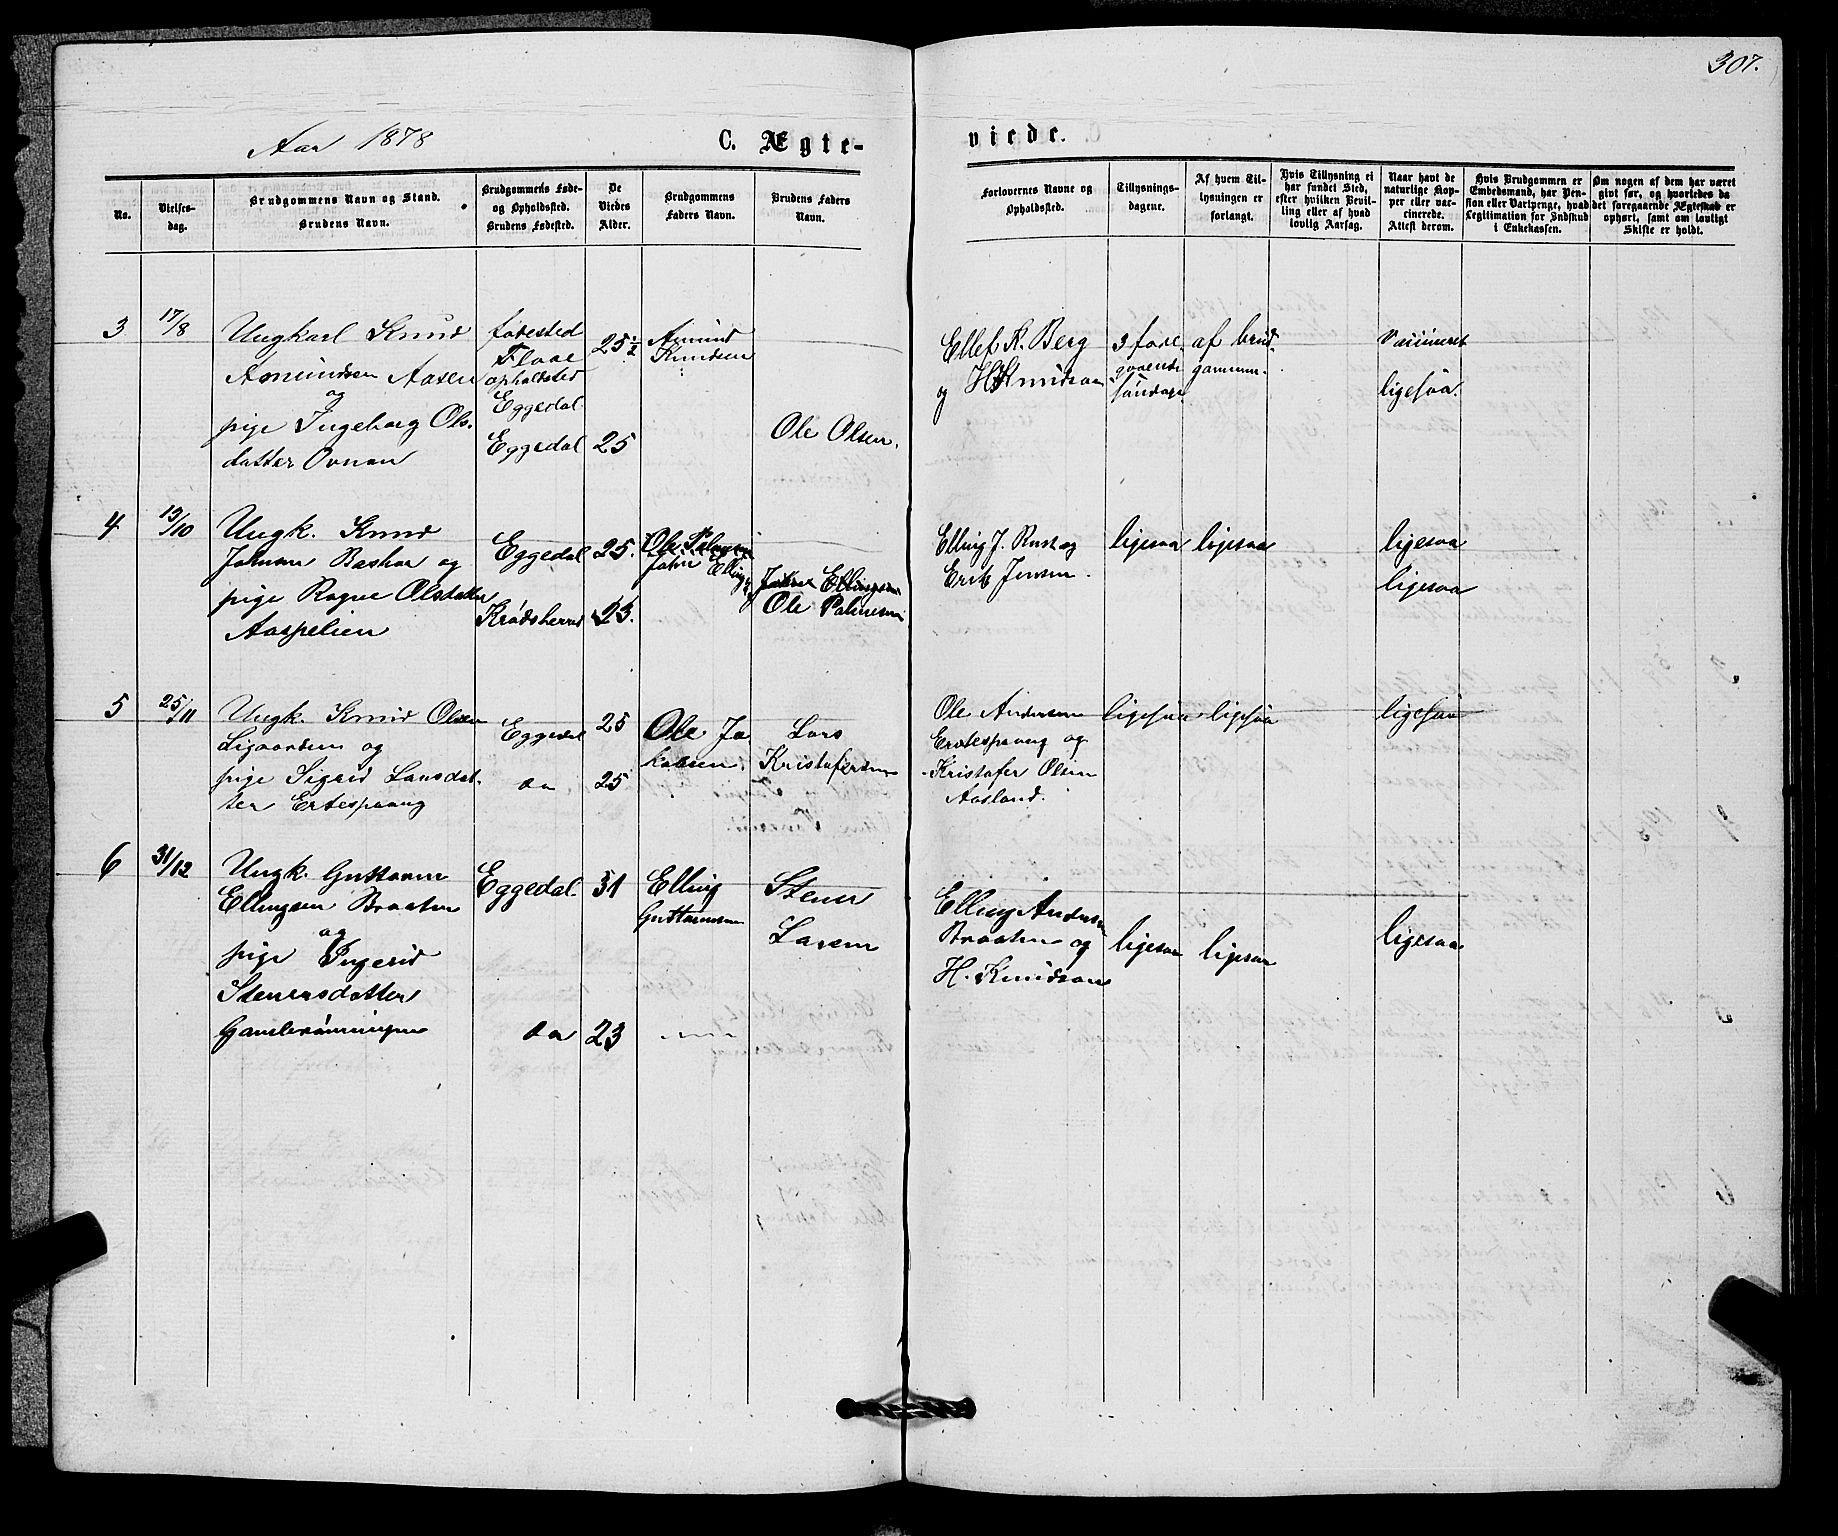 307.
Aar 1878
C. Ægte-
viede.
No.
Vielses-
dag.
Brudgommens Navn og Stand.
Brudens Navn.
Brudgommens Føde-
og Opholdssted.
Brudens Fødested.
De
Viedes
Alder.
Brudgommens
Faders Navn.
Brudens Faders
Navn.
Forlovernes Navne og
Opholdssted.
Tillysnings-
dagene.
Af hvem Til-
lysningen er
forlangt.
Hvis Tillysning ei
har fundet Sted,
efter hvilken Bevil-
ling eller af hvad
lovlig Aarsag.
Naar havt de
naturlige Kop-
per eller vac-
cinerede.
Attest derom.
Hvis Brudgommen er
Embedsmand, har Pen-
sion eller Vartpenge, hvad
Legitimation for Indskud
i Enkekassen.
Om nogen af dem har været
givt før, og hvorledes da
det foregaaende Ægteskab er
ophørt, samt om lovligt
Skifte er holdt.
3
17/8
Ungkarl Knud
Amundsen Aasen
og
pige Ingeborg Ols-
datter Ovnan
fødested
Flaae
opholdsted
Eggedal
Eggedal
25 1/2
25
Amund
Knudsen
Ole Olsen.
Ellef K. Berg
og H. Knudson
3 fore
gaaende
søndage
af brud-
gommen.
Vaccineret
ligesaa.
4
13/10
Ungk. Knud
Johnsen Baskar og
pige Ragne Olsdatter
Aaspelien
Eggedal
Krødsherred
25.
23.
Ole Palmesen
John Elling
John Ellingsen
Ole Palmesen
Elling J. Rust og
Erik Jensen.
ligesaa
ligesaa
ligesaa
ligesaa
5
25/11
Ungk. Knud Olsen
Ligaardsen og
pige Sigrid Larsdat-
ter Ertespaang
Eggedal
do
25
25
Ole Ja
kobsen.
Lars
Kristofersen
Ole Andersen
Ertespaang og
Kristofer Olsen
Aasland.
ligesaa
ligesaa
ligesaa
6
31/12
Ungk. Guttorm
Ellingsen Braaten
og
pige Ingerid
Stenersdatter
Gamlerønningen
Eggedal.
do
31
23
Elling
Guttormsen
Stener
Larsen
Elling Andersen
Braaten og
H. Knudson
ligesaa
ligesaa
ligesaa